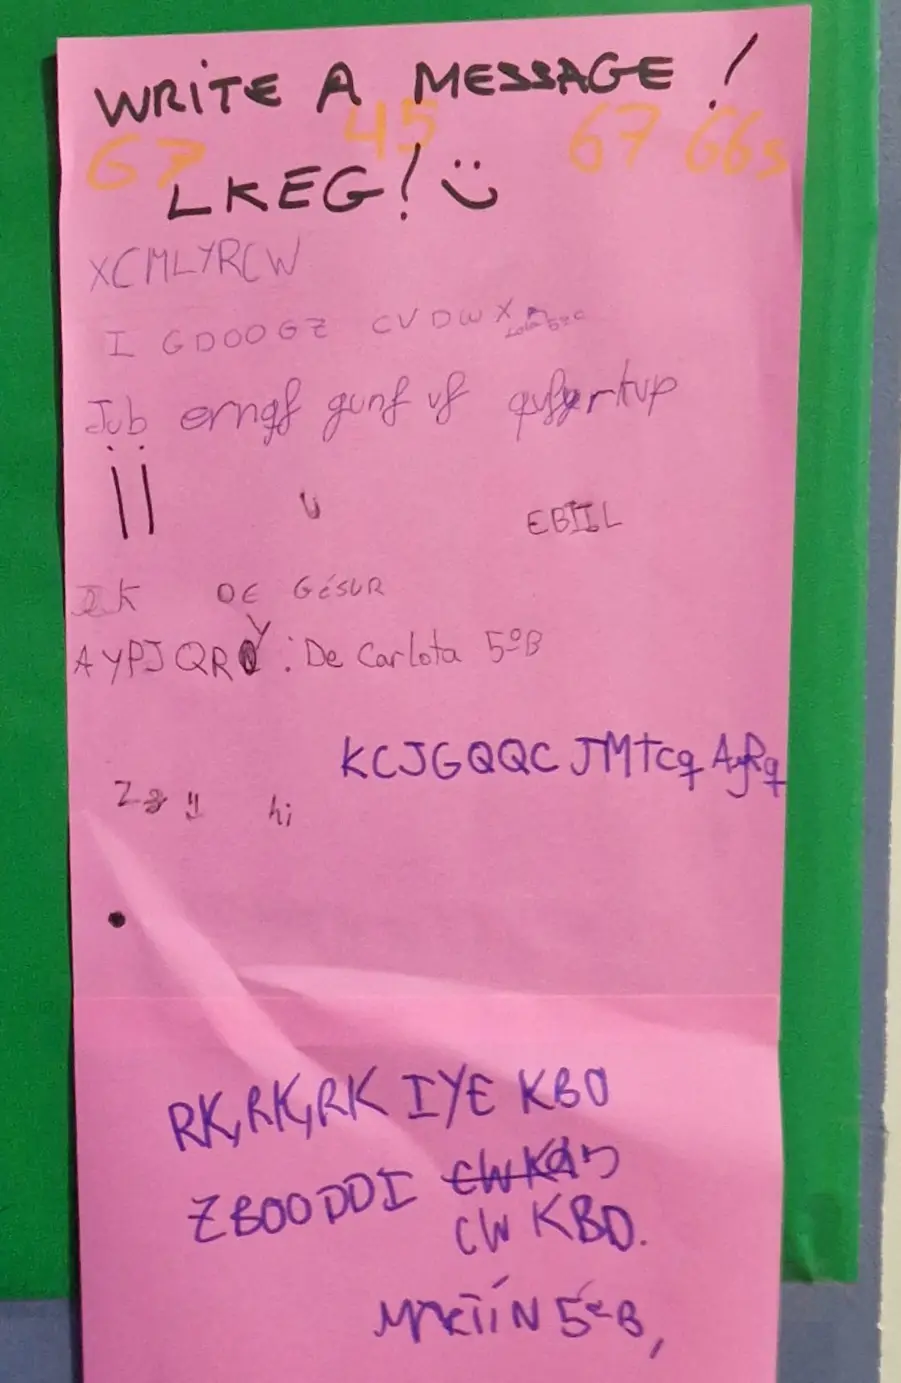 WRITE A MESSAGE!
67 45 67 66s
LKEG! :)
XCMLYRCW
I GDOOGZ CVDWX
Jub erngf gunf vf
EBIIL
DE GÉSUR
AYPJQRY: De Carlota 5ºB
KCJGQQC JMTcq AyRq
hi
RK,RK,RK IYE KBO
ZBOODDI
CW KBO.
5º-B,